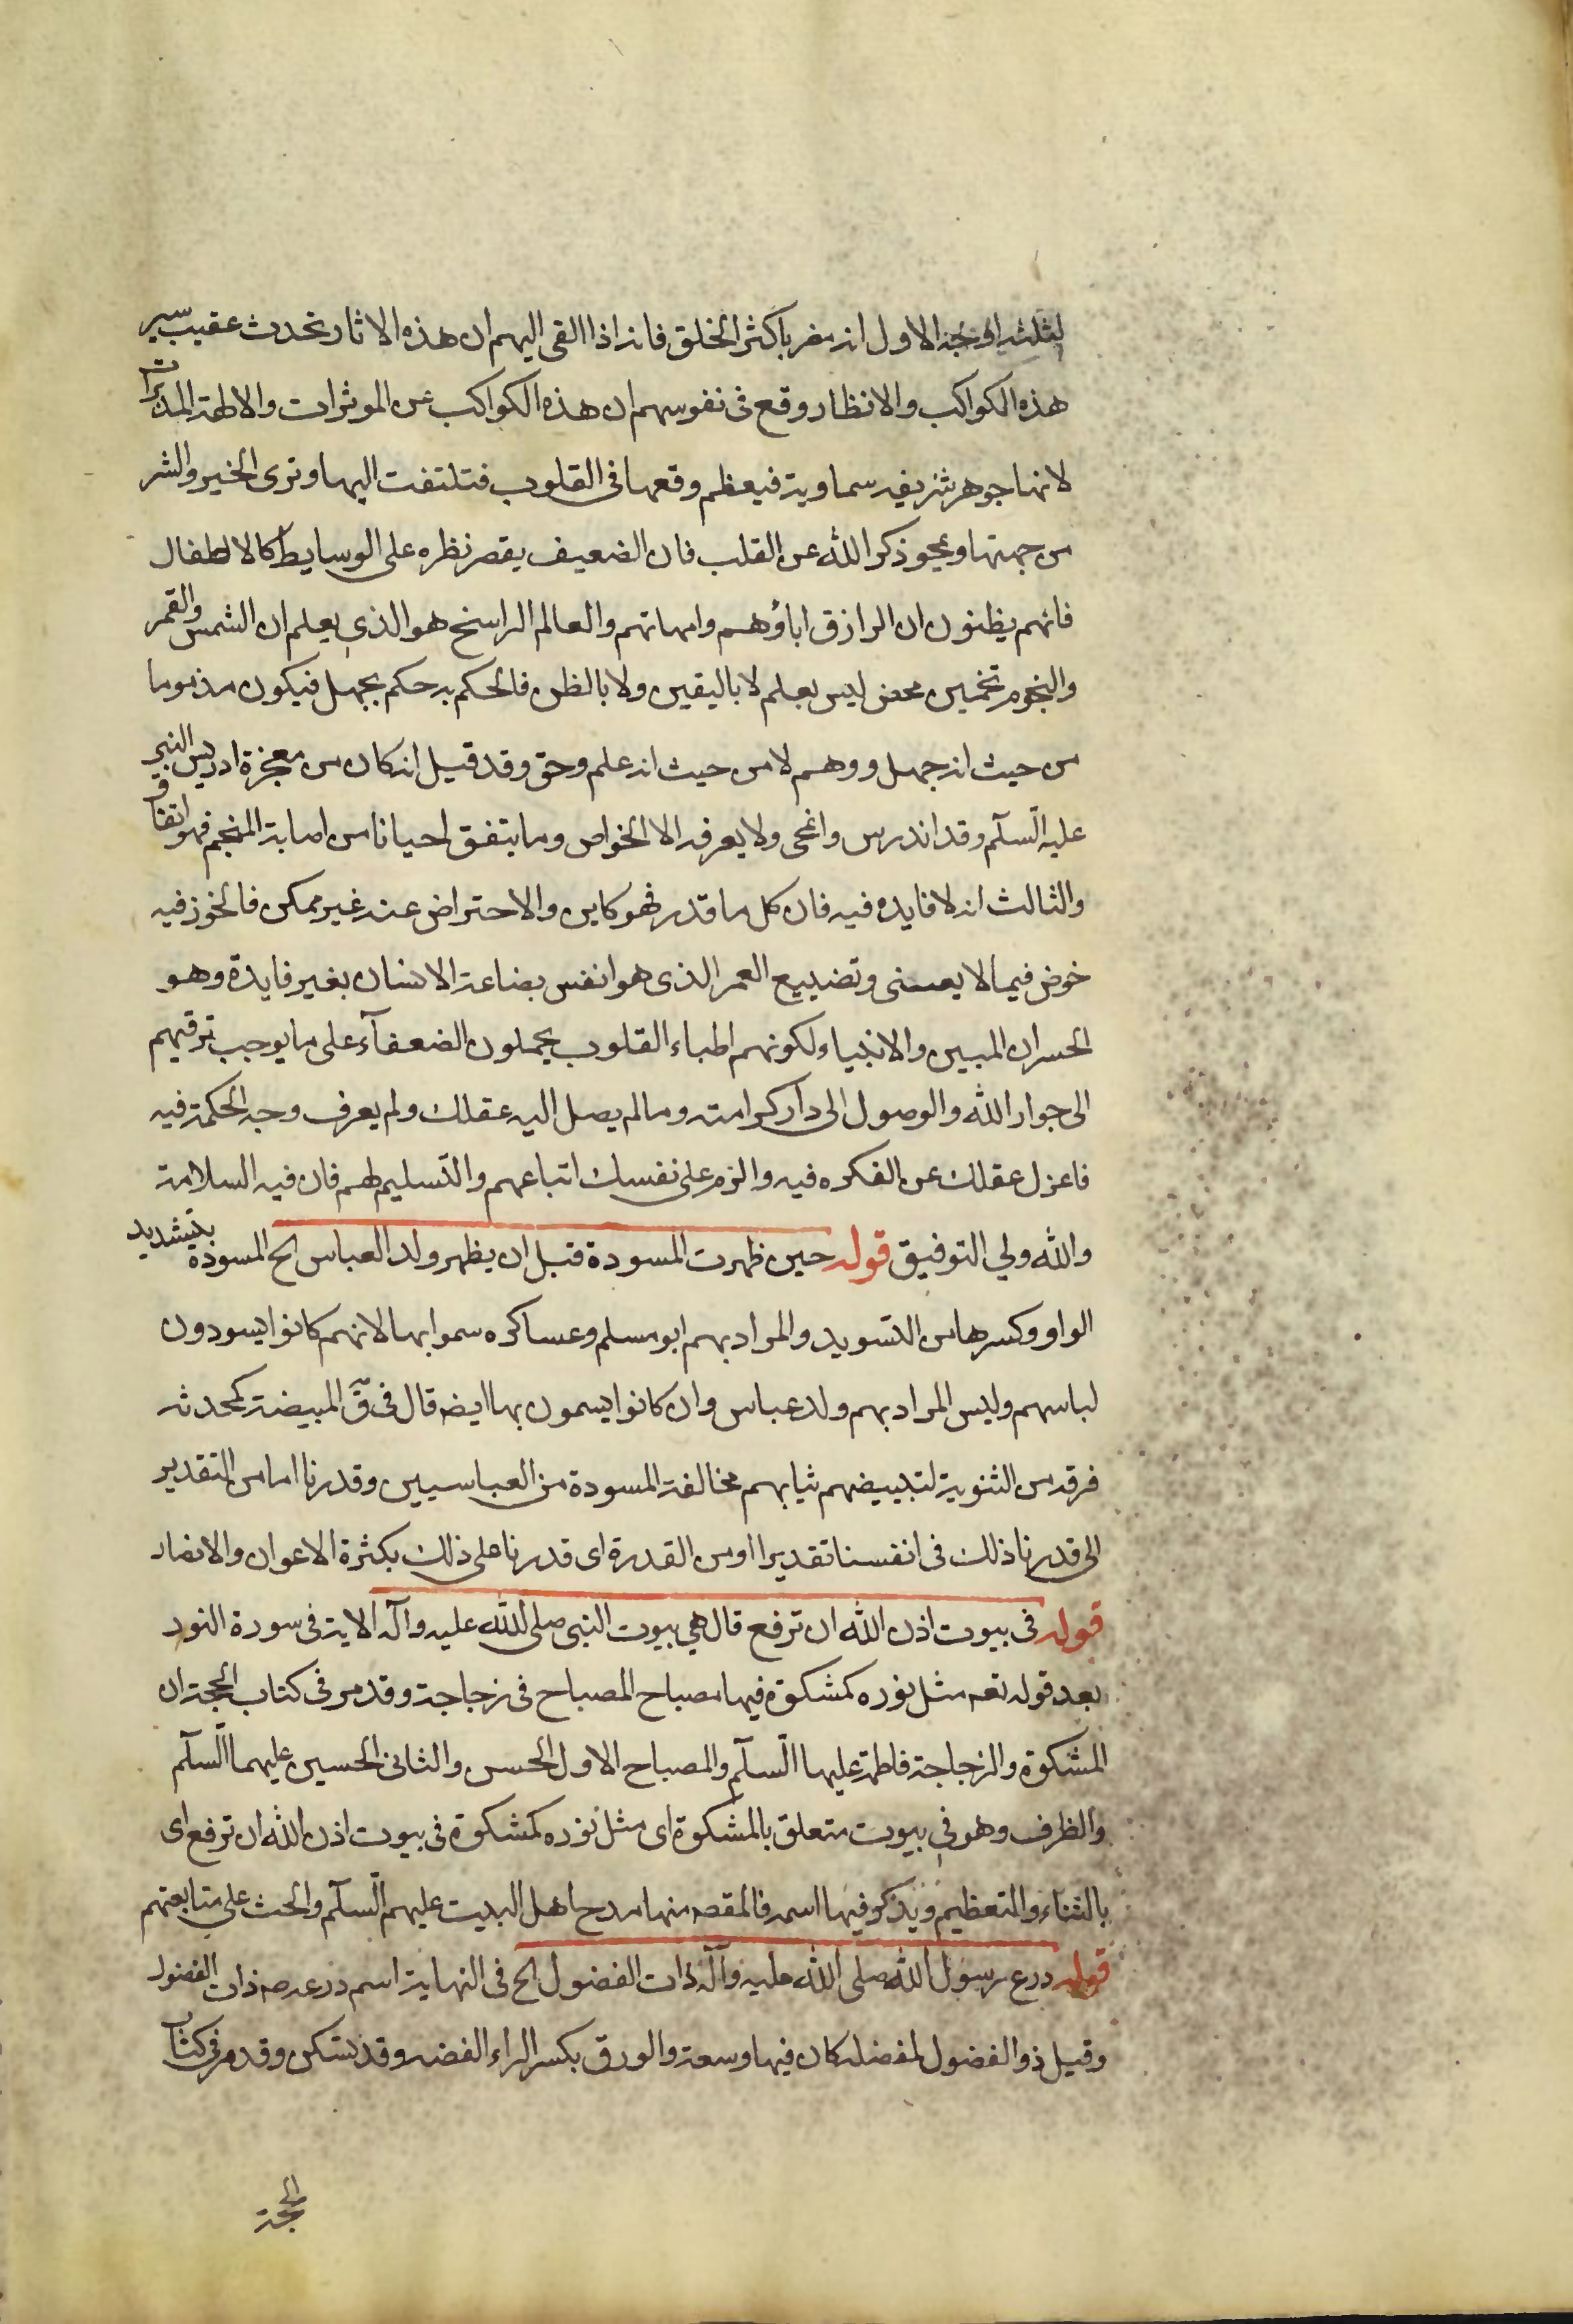 لثلثة اوجه الاول انه مضر باكثر الخلق فانه اذا القى اليهم ان هذه الاثار تحدث عقيب سير
هذه الكواكب والانظار وقع فى نفوسهم ان هذه الكواكب هى الموثرات والالهة المدبرات
لانها جوهر شريفه سماوية فيعظم وقعها فى القلوب فتلتفت اليها وترى الخير والشر
من جهتها ويمحو ذكر الله عن القلب فان الضعيف يقصر نظره على الوسايط كالاطفال
فانهم يظنون ان الرازق اباؤهم وامهاتهم والعالم الراسخ هو الذى يعلم ان الشمس والقمر
والنجوم تخمين محض ليس بعلم لا باليقين ولا بالظن فالحكم به حكم بجهل فيكون مذموما
من حيث انه جهل ووهم لا من حيث انه علم وحق وقد قيل انه كان من معجزة ادريس النبى
عليه السلم وقد اندرس وانمحى ولا يعرفه الا الخواص وما يتفق احيانا من اصابة المنجم فهو اتفاقى
والثالث انه لا فايده فيه فان كل ما قدر فهو كاين والاحتراض عنه غير ممكن فالخوز فيه
خوض فيما لا يعنى وتضييع العمر الذى هو انفس بضاعة الانسان بغير فايدة وهو
الخسران المبين والانبياء ولكونهم اطباء القلوب يحملون الضعفآء على ما يوجب ترقيهم
الى جوار الله والوصول الى دار كرامته وما لم يصل اليه عقلك ولم يعرف وجه الحكمة فيه
فاعزل عقلك عن الفكره فيه والزم على نفسك اتباعهم والتسليم لهم فان فيه السلامة
والله ولي التوفيق قوله حين ظهرت المسودة قبل ان يظهر ولد العباس الخ المسودة بتشديد
الواو وكسرها من التسويد والمراد بهم ابو مسلم وعساكره سموا بها لانهم كانوا يسودون
لباسهم وليس المراد بهم ولد عباس وان كانوا يسمون بها ايضه قال فى ق المبيضة كمحدثه
فرقه من الثنوية لتبييضهم ثيابهم مخالفة المسودة من العباسيين وقدرنا اما من التقدير
الى قدرنا ذلك فى انفسنا تقديرا او من القدرة اى قدرنا على ذلك بكثرة الاعوان والانصار
قوله فى بيوت اذن الله ان ترفع قال هي بيوت النبى صلى الله عليه وآله الاية فى سورة النور
بعد قوله تعه مثل نوره كمشكوة فيها مصباح المصباح فى زجاجة وقد مر فى كتاب الحجة ان
المشكوة والزجاجة فاطمة عليها السلم والمصباح الاول الحسن والثانى الحسين عليهما السلم
والظرف وهو فى بيوت متعلق بالمشكوة اى مثل نوره كمشكوة فى بيوت اذن الله ان ترفع اى
بالثناء والتعظيم ويذكر فيها اسمه فالمقصه منها مدح اهل البيت عليهم السلم والحث على متابعتهم
قوله درع رسول الله صلى الله عليه وآله ذات الفضول الخ فى النهاية اسم درعه صه ذات الفضول
وقيل ذو الفضول لفضله كان فيها وسعة والورق بكسر الراء الفضه وقد تسكن وقد مر فى كتاب
الحجة